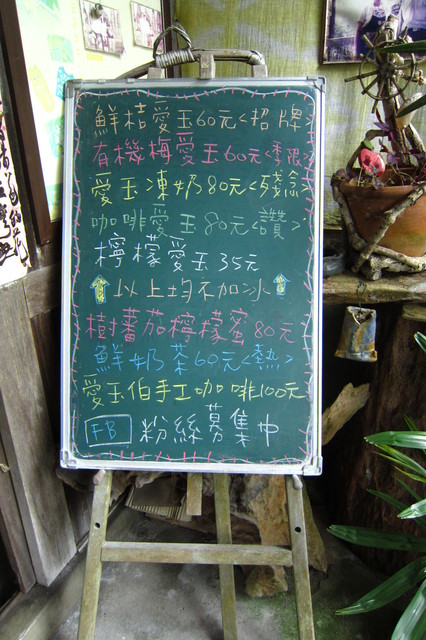 鮮桔愛玉60元<招牌>
有機梅愛玉60元<季限>
愛玉凍奶80元<殘念>
咖啡愛玉80元<讚>
檸檬愛玉35元
以上均不加冰
樹蕃茄檸檬蜜80元
鮮奶茶60元<熱>
愛玉伯手工咖啡100元
FB 粉絲募集中